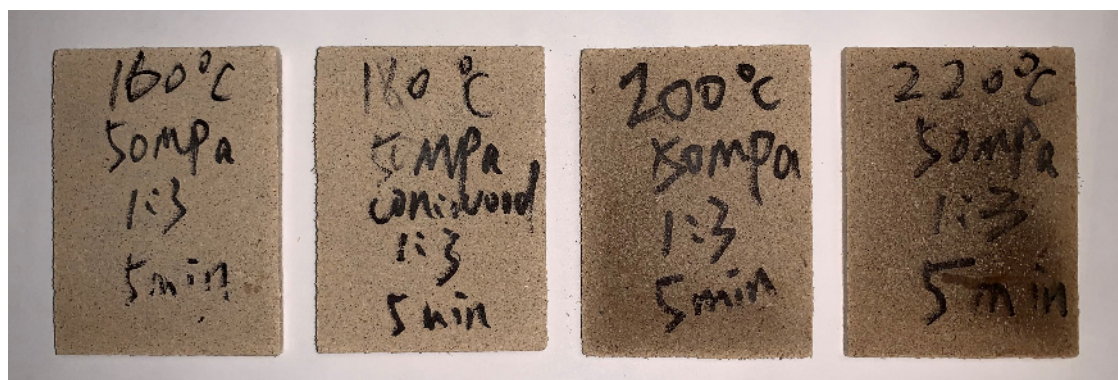 160°C
50MPa
1:3
5min
180°C
50MPa
coniwood
1:3
5min
200°C
50MPa
1:3
5min
220°C
50MPa
1:3
5min